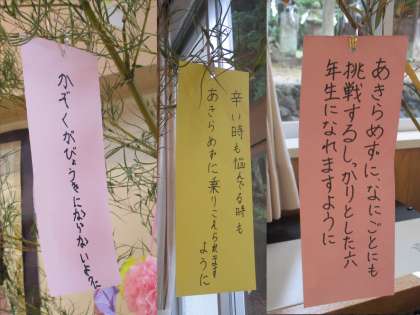 かぞくがびょうきにかからないように
辛い時も悩んでる時も
あきらめずに乗りこえられます
ように
あきらめずに、なにごとにも
挑戦するしっかりとした六
年生になれますように